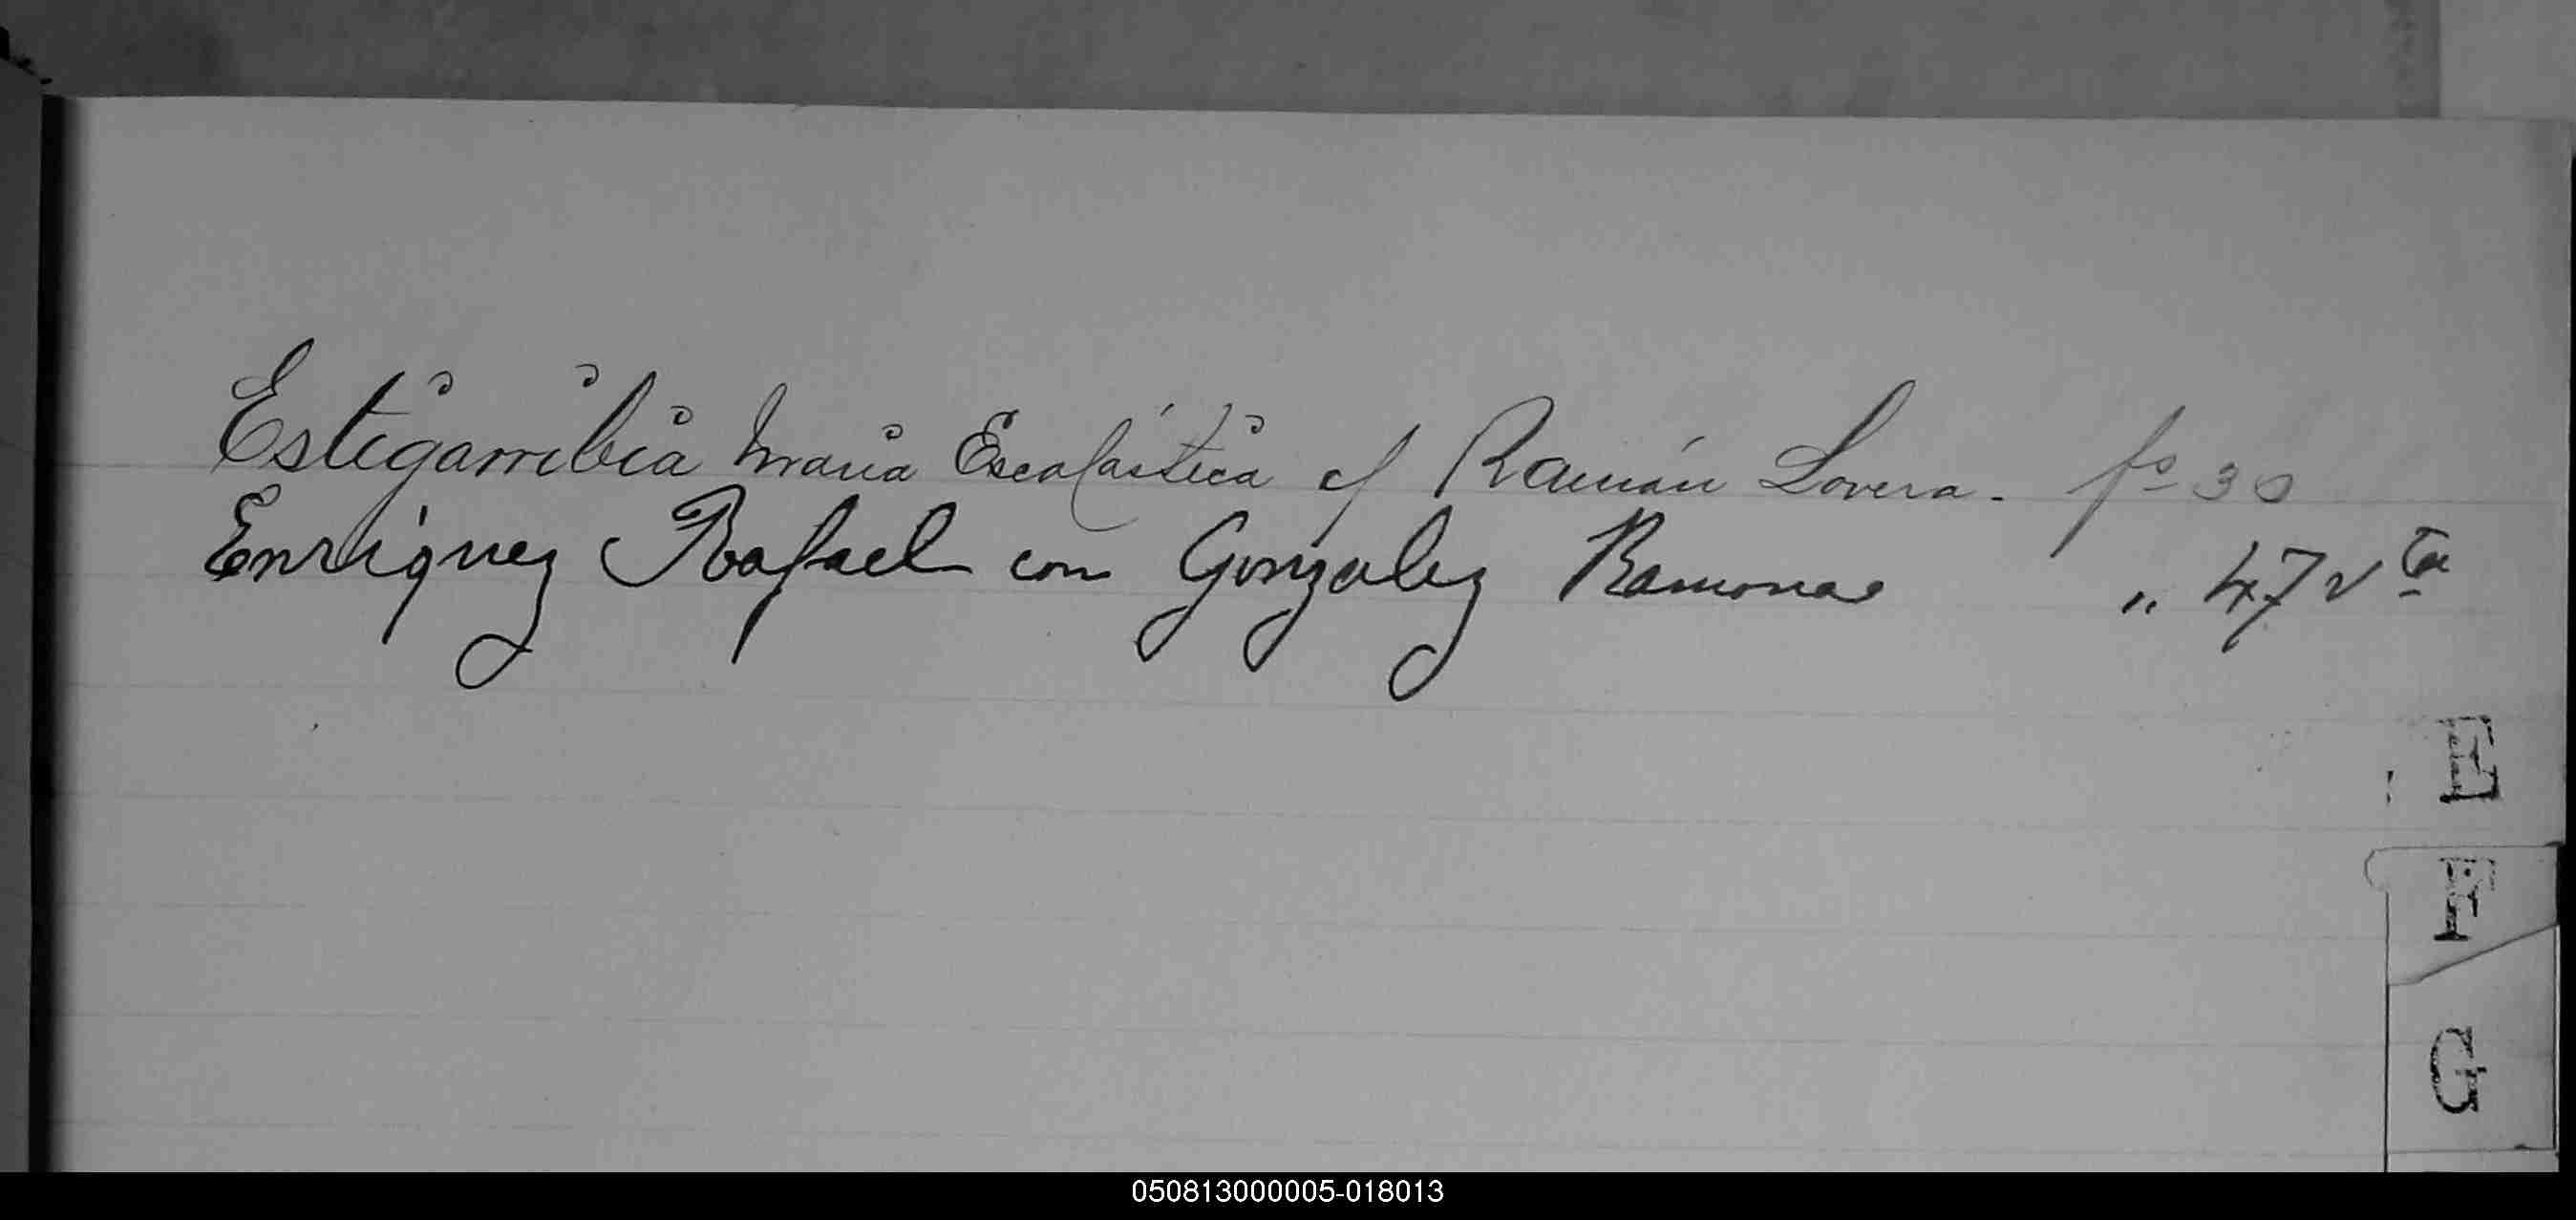 Estigarribia Maria Escolástica c/ Ramón Lovera - fo 30
Enriquez Rafael con Gonzalez Ramona " 47 vta
E
F
G
050813000005-018013